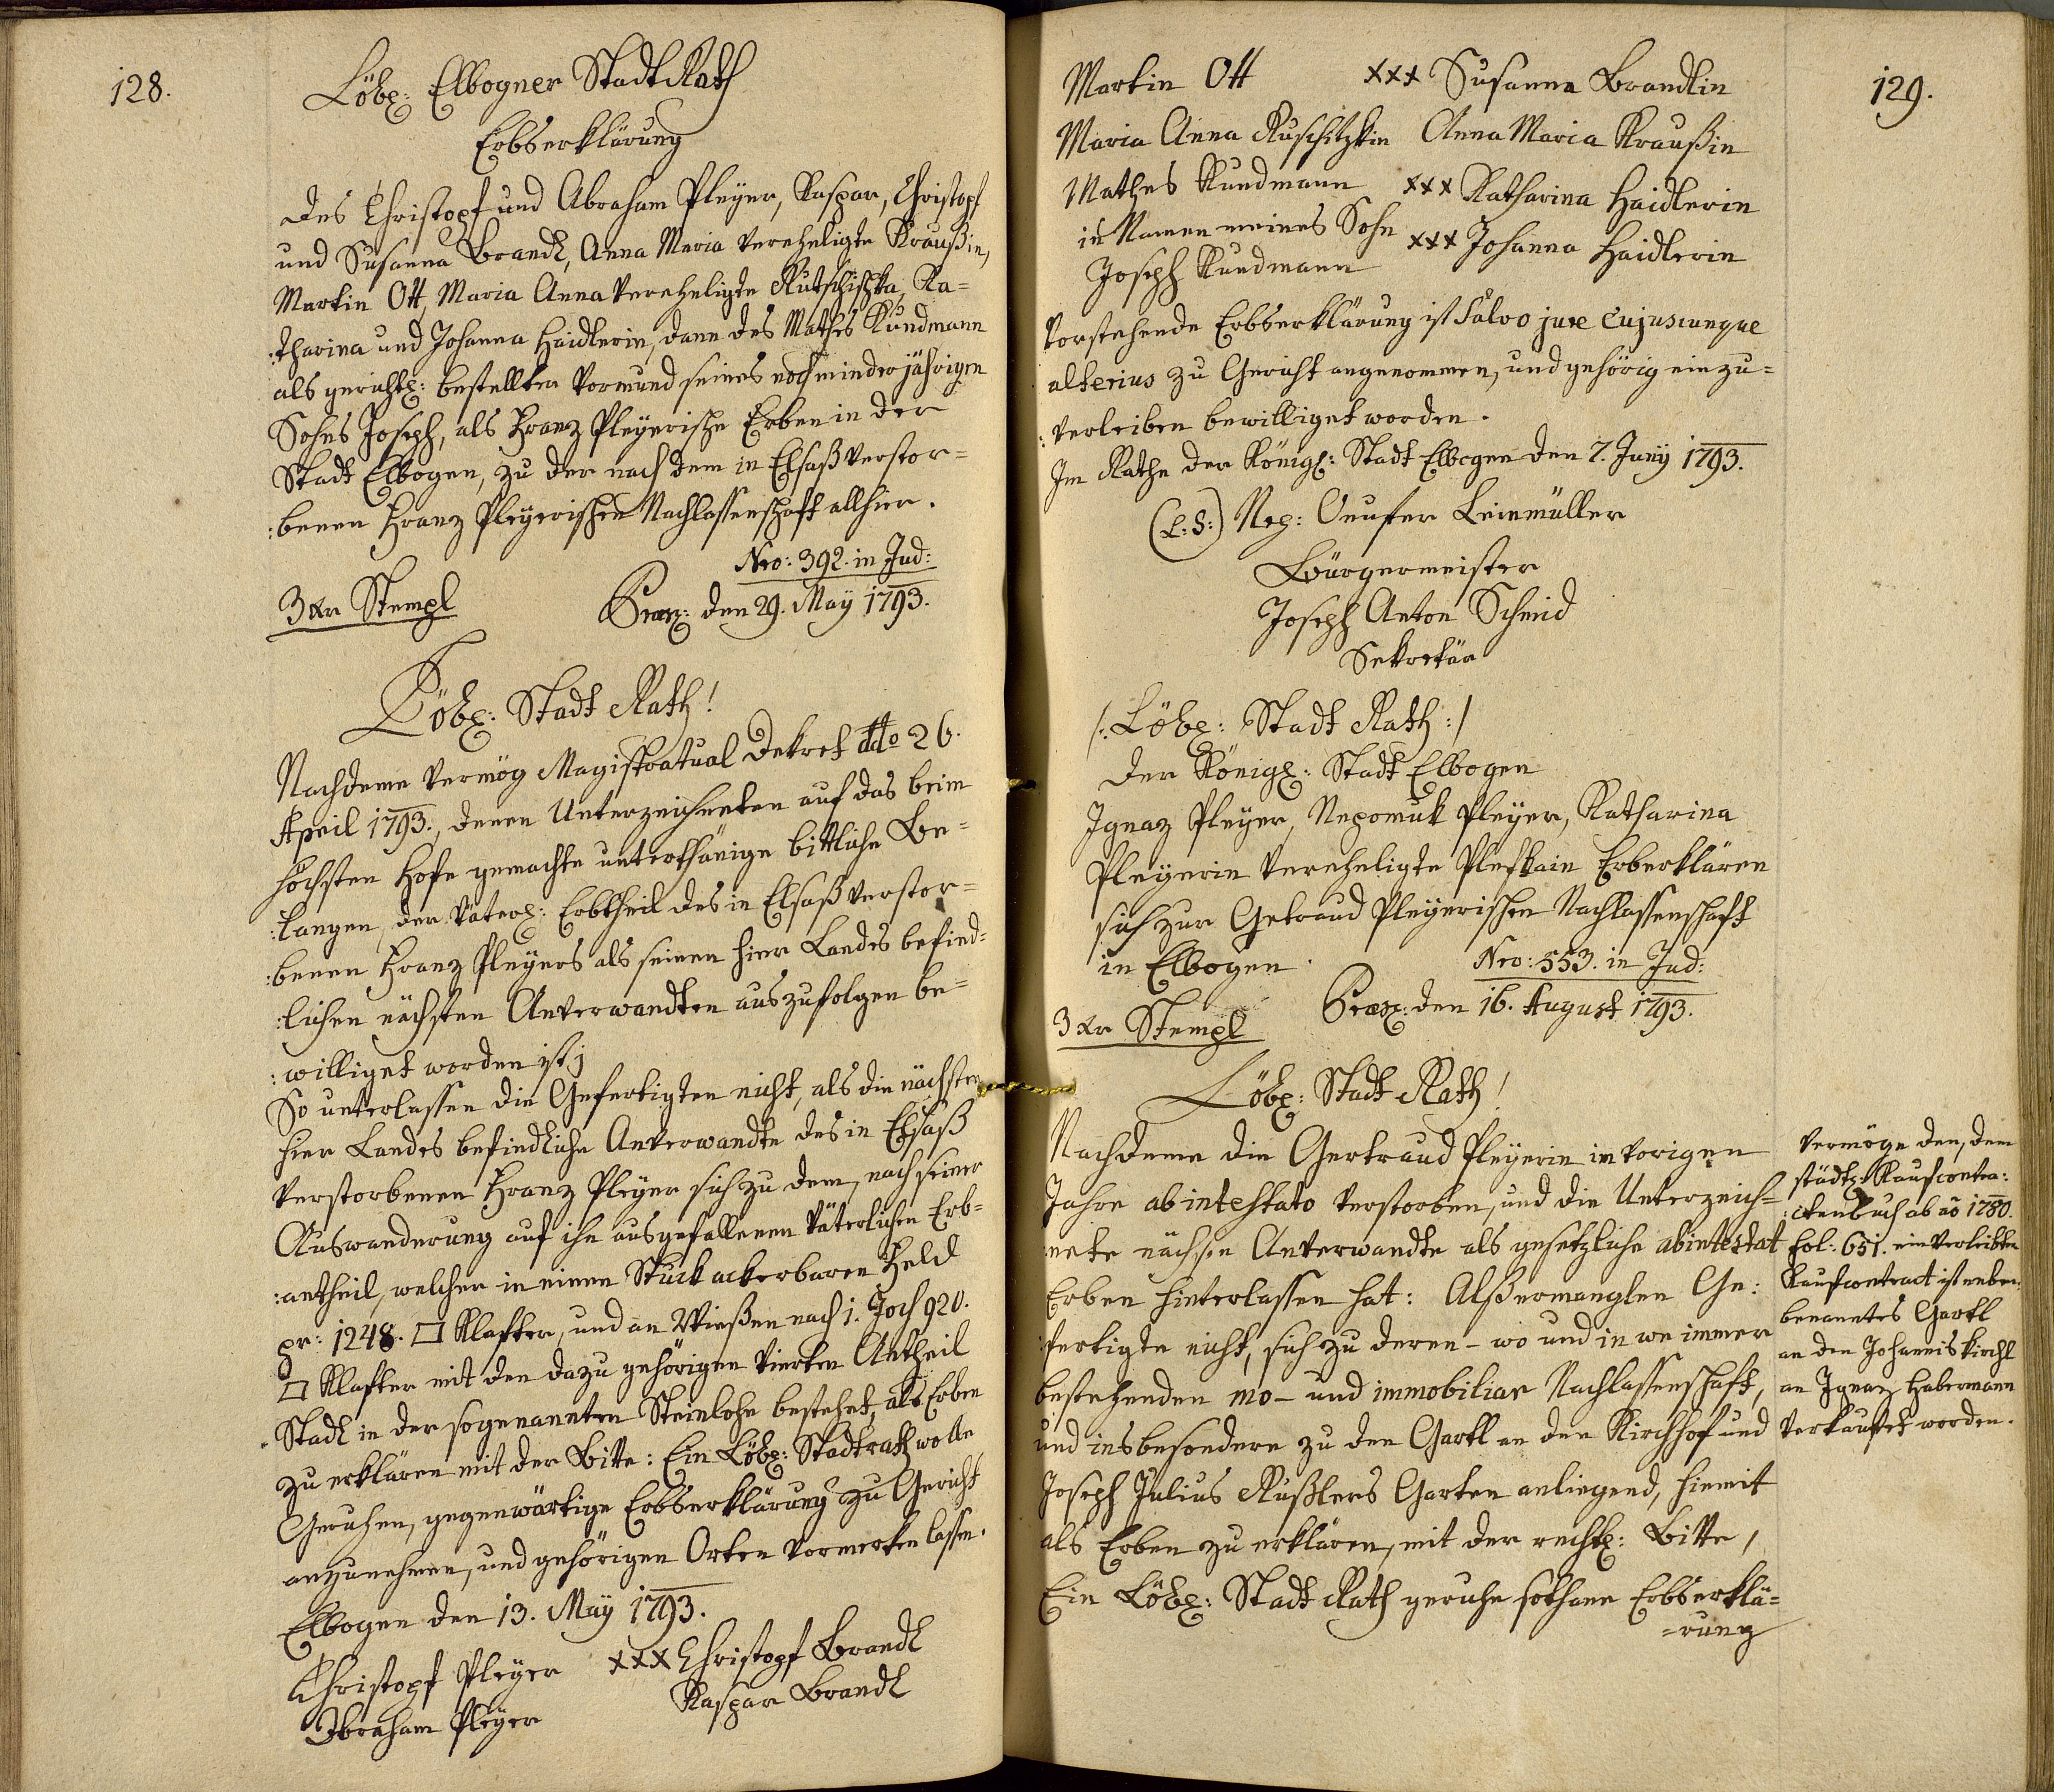 128.
Löbl: Elbogner Stadt Rath
Erbserklärung
des Christopf und Abraham Pleÿer, Kaspar, Christopf
und Susanna Brandl, Anna Maria verehligte Kraußin,
Martin Ott, Maria Anna verehligte Rutschitzka, Ka=
:tharina und Johanna Haidlerin, dann des Mathes Kundmann
als gerichtl: bestellten Vormund seines noch minderjährigen
Sohns Joseph, als Franz Pleÿerische Erben in der
Stadt Elbogen, zu der nach dem in Elsaß verstor=
:benen Franz Pleÿerischen Nachlassenschaft allhier.
Nro: 392. in Jud:
3 xr Stempl
Præs: den 29. Maÿ 1793.
Löbl: Stadt Rath!
Nachdeme vermög Magistratual Dekret ddo 26.
April 1793., denen Unterzeichneten auf das beim
höchsten Hofe gemachte unterthänige bittliche Be=
:langen, der väterl: Erbtheil des in Elsaß verstor=
:benen Franz Pleÿers als seinen hier Landes befind=
:lichen nächsten Anverwandten auszufolgen be=
:williget worden ist;
So unterlassen die Gefertigten nicht, als die nächsten
hier Landes befindliche Anverwandte des in Elsaß
verstorbenen Franz Pleÿer sich zu dem, nach seiner
Auswanderung auf ihn ausgefallenen väterlichen Erb=
:antheil, welcher in einem Stuck ackerbaren Feld
pr: 1248. □ Klafter, und an Wießen nach 1. Joch 920.
□ Klafter mit den dazu gehörigen vierten Antheil
Stadl in der sogenannten Steinlohe bestehet, als Erben
zu erklären mit der Bitte: Ein Löbl: Stadtrath wolle
Geruhen, gegenwärtige Erbserklärung zu Gericht
anzunehmen, und gehörigen Orten vormerken lassen.
Elbogen den 13. Maÿ 1793.
Christopf Pleÿer xxx Christopf Brandl
Abraham Pleÿer Kaspar Brandl
129.
Martin Ott xxx Susanna Brandlin
Maria Anna Ruschitzkin Anna Maria Kraußin
Mathes Kundmann xxx Katharina Haidlerin
in Namen meines Sohn xxx Johanna Haidlerin
Joseph Kundmann
Vorstehende Erbserklärung ist Salvo jure cujuscunque
alterius zu Gericht angenommen, und gehörig einzu=
:verleiben bewilliget worden.
Im Rathe der Königl: Stadt Elbogen den 7. Junÿ 1793.
(L: S:) Nep: Onufer Leinmüller
Bürgermeister
Joseph Anton Schmid
Sekretär
/: Löbl: Stadt Rath :/
der Königl: Stadt Elbogen
Ignaz Pleÿer, Nepomuk Pleÿer, Katharina
Pleÿerin verehligte Pleskain Erberklären
sich zur Getraud Pleÿerischen Nachlassenschaft
in Elbogen.
Nro: 553. in Jud:
3 xr Stempl
Præs: den 16. August 1793.
Löbl: Stadt Rath!
Nachdeme die Gertraud Pleÿerin in vorigen
Jahre ab intestato verstorben, und die Unterzeich=
:nete nächste Anverwandte als gesetzliche abintestat
Erben hinterlassen hat: Alß ermanglen Ge:
:fertigte nicht, sich zu deren - wo und in we immer
bestehenden mo- und immobiliar Nachlassenschaft,
und insbesondere zu den Gartl an den Kirchhof und
Joseph Julius Rußlers Garten anliegend, hiemit
als Erben zu erklären, mit der rechtl: Bitte,
Ein Löbl: Stadt Rath geruhe sothane Erbserklä=
=rung
Vermöge den, dem
städtl: Kaufcontra:
:ctenbuch ab aõ 1780.
Fol: 651. einverleibten
Kaufcontract ist neben
benanntes Gartl
an den Johannis Kirchl
an Ignaz Habermann
verkaufet worden.